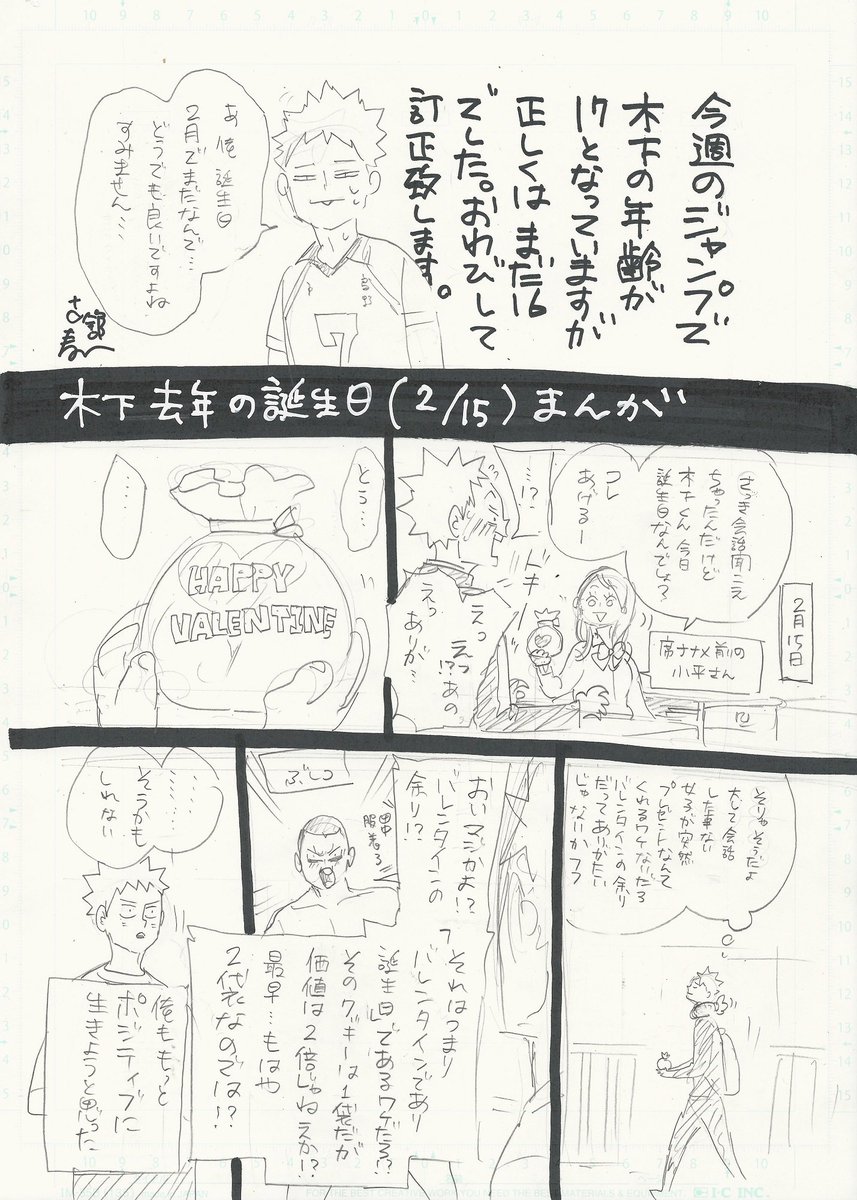 今週のジャンプで
木下の年齢が
17となっていますが
正しくは まだ16
でした。おわびして
訂正致します。
あ 俺 誕生日
2月でまだなんで…
どうでも良いですよね
すみません…
烏野
7
木下 去年の誕生日(2/15)まんが
2月15日
席ナナメ前の
小平さん
さっき会話聞こえ
ちゃったんだけど
木下くん 今日
誕生日なんでしょ?
コレ
あげるー
…!?
ドキー
えっ えっ!? あの
えっ
ありが…
とう…
……
HAPPY
VALENTINE
そりゃそうだよ
大して会話
した事ない
女子が突然
プレゼントなんて
くれるワケないだろ
バレンタインの余り
だってありがたい
じゃないかフフ
おいマジかよ!?
バレンタインの
余り!?
ぶしつ
田中
服着ろ
それはつまり
「バレンタインであり
誕生日」であるワケだろ!?
そのクッキーは1袋だが
価値は2倍じゃねえか!?
最早…もはや
2袋なのでは!?
………
そうかも
しれない
俺ももっと
ポジティブに
生きようと思った
I・C INC.